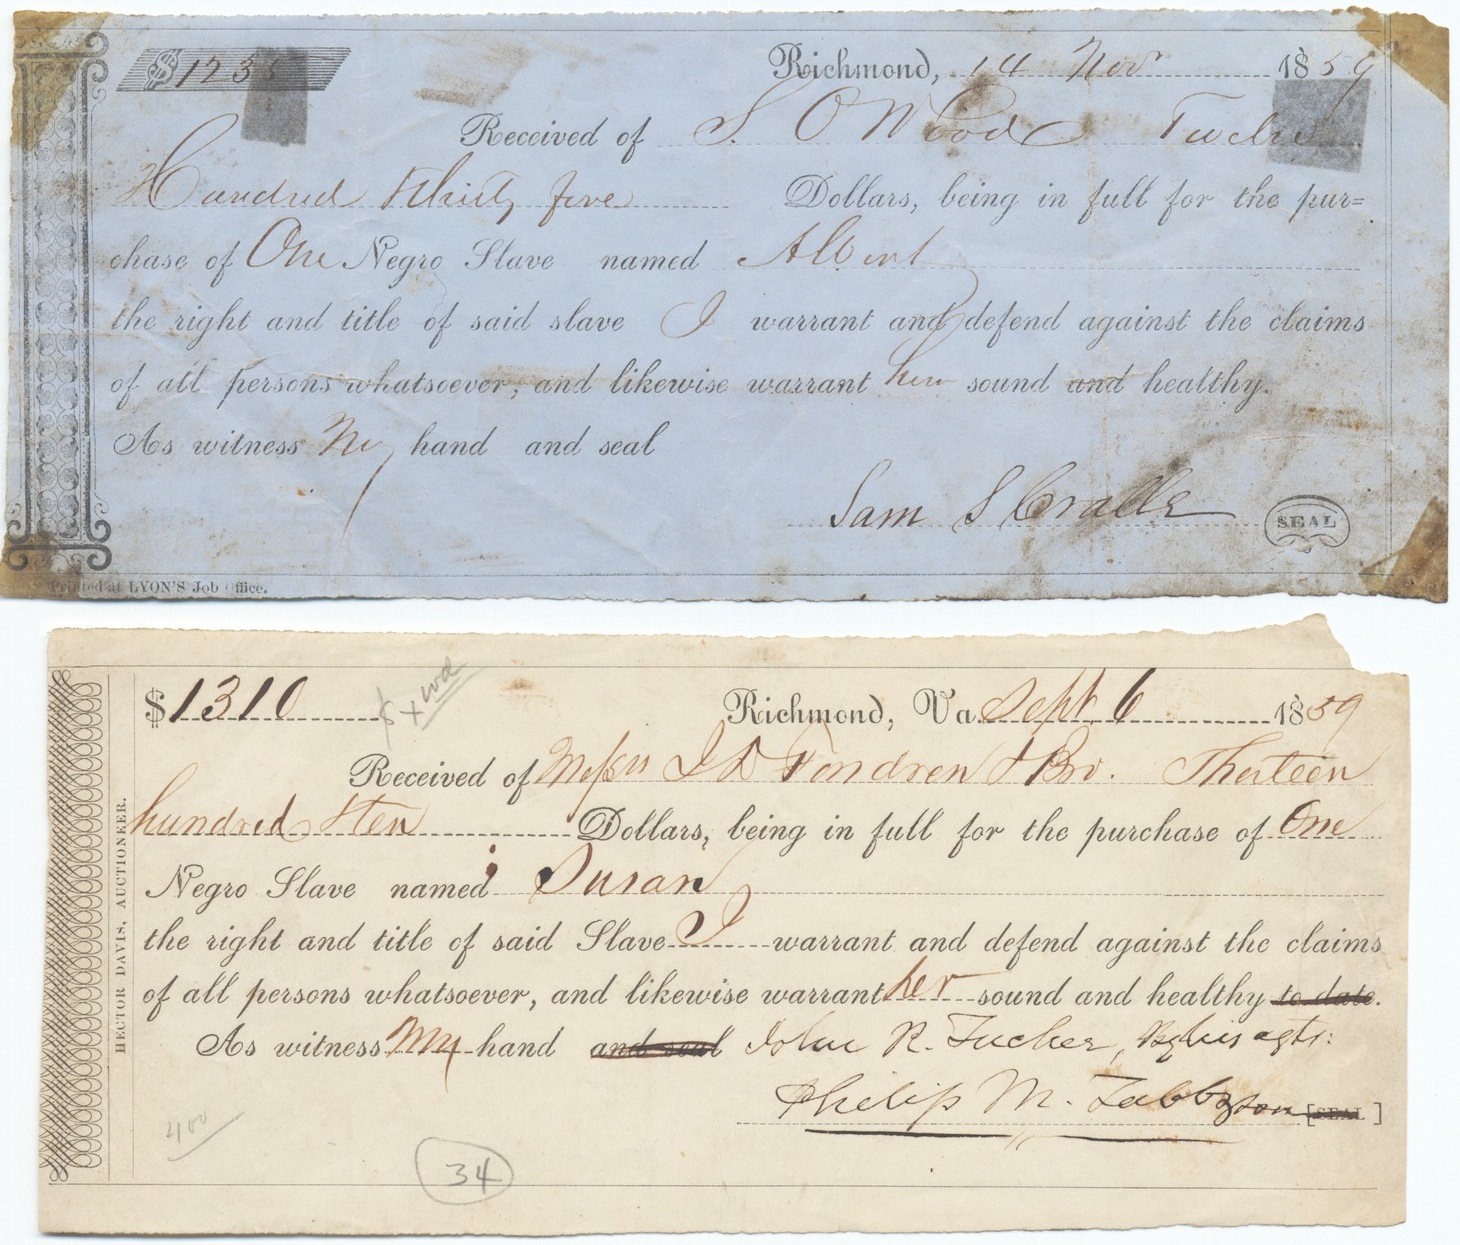 $1235
Richmond, 14 Nov 1859
Received of S. O Wood Twelve
Hundred & thirty five Dollars, being in full for the pur=
chase of One Negro Slave named Albert
the right and title of said slave I warrant and defend against the claims
of all persons whatsoever, and likewise warrant him sound and healthy.
As witness My hand and seal
Sam S Cralle SEAL
Printed at LYON'S Job Office.
$1310
Richmond, Va Sept 6 1859
Received of Messrs J D Fondren & Bro. Thirteen
hundred & ten Dollars, being in full for the purchase of One
Negro Slave named Susan
the right and title of said Slave I warrant and defend against the claims
of all persons whatsoever, and likewise warrant her sound and healthy to date.
As witness My hand and seal John R. Tucker, By his agt:
Philip M. Tabb & son [SEAL]
HECTOR DAVIS, AUCTIONEER.
400
34